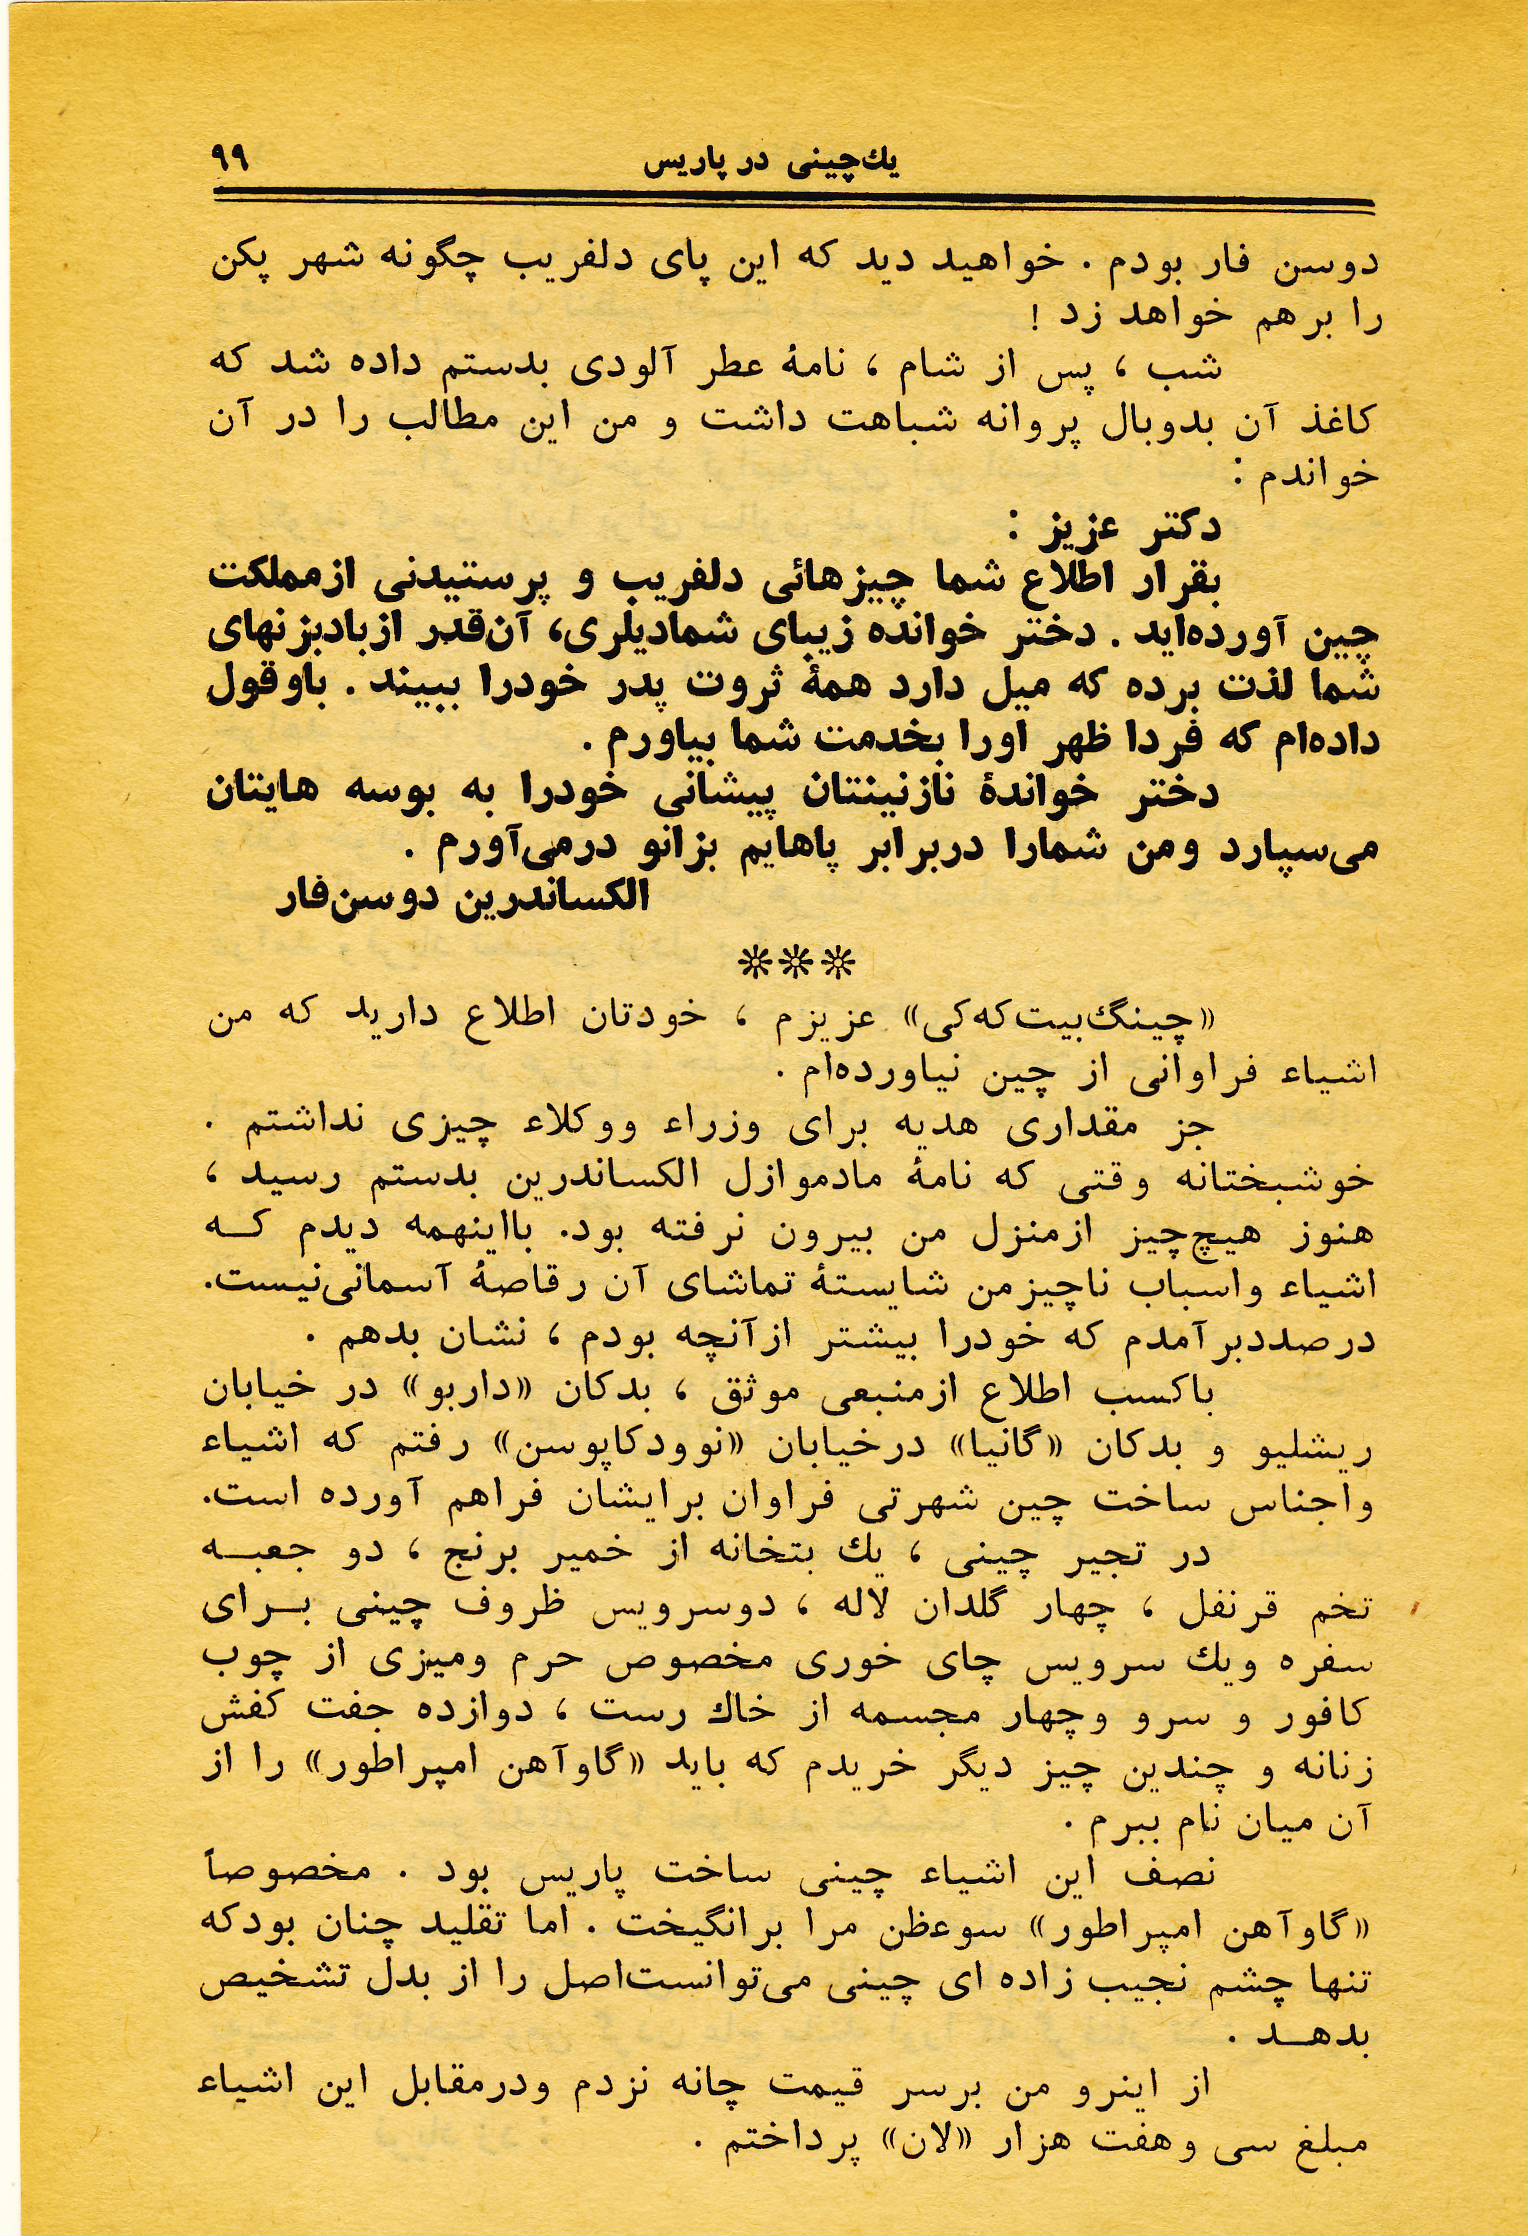 یك‌چینی در پاریس ۹۹
دوسن فار بودم . خواهید دید که این پای دلفریب چگونه شهر پکن
را برهم خواهد زد !
شب ، پس از شام ، نامهٔ عطر آلودی بدستم داده شد که
کاغذ آن بدوبال پروانه شباهت داشت و من این مطالب را در آن
خواندم :
دکتر عزیز :
بقرار اطلاع شما چیزهائی دلفریب و پرستیدنی ازمملکت
چین آورده‌اید . دختر خوانده زیبای شمادیلری، آن‌قدر ازبادبزنهای
شما لذت برده که میل دارد همهٔ ثروت پدر خودرا ببیند . باوقول
داده‌ام که فردا ظهر اورا بخدمت شما بیاورم .
دختر خواندهٔ نازنینتان پیشانی خودرا به بوسه هایتان
می‌سپارد ومن شمارا دربرابر پاهایم بزانو درمی‌آورم .
الکساندرین دوسن‌فار
***
«چینگ‌بیت‌که‌کی» عزیزم ، خودتان اطلاع دارید که من
اشیاء فراوانی از چین نیاورده‌ام .
جز مقداری هدیه برای وزراء ووکلاء چیزی نداشتم .
خوشبختانه وقتی که نامهٔ مادموازل الکساندرین بدستم رسید ،
هنوز هیچ‌چیز ازمنزل من بیرون نرفته بود. بااینهمه دیدم کـه
اشیاء واسباب ناچیزمن شایستهٔ تماشای آن رقاصهٔ آسمانی‌نیست.
درصددبرآمدم که خودرا بیشتر ازآنچه بودم ، نشان بدهم .
باکسب اطلاع ازمنبعی موثق ، بدکان «داربو» در خیابان
ریشلیو و بدکان «گانیا» درخیابان «نوودکاپوسن» رفتم که اشیاء
واجناس ساخت چین شهرتی فراوان برایشان فراهم آورده است.
در تجیر چینی ، یك بتخانه از خمیر برنج ، دو جعبـه
تخم قرنفل ، چهار گلدان لاله ، دوسرویس ظروف چینی بـرای
سفره ویك سرویس چای خوری مخصوص حرم ومیزی از چوب
کافور و سرو وچهار مجسمه از خاك رست ، دوازده جفت کفش
زنانه و چندین چیز دیگر خریدم که باید «گاوآهن امپراطور» را از
آن میان نام ببرم .
نصف این اشیاء چینی ساخت پاریس بود . مخصوصاً
«گاوآهن امپراطور» سوءظن مرا برانگیخت . اما تقلید چنان بودکه
تنها چشم نجیب زاده ای چینی می‌توانست‌اصل را از بدل تشخیص
بدهـد .
از اینرو من برسر قیمت چانه نزدم ودرمقابل این اشیاء
مبلغ سی وهفت هزار «لان» پرداختم .